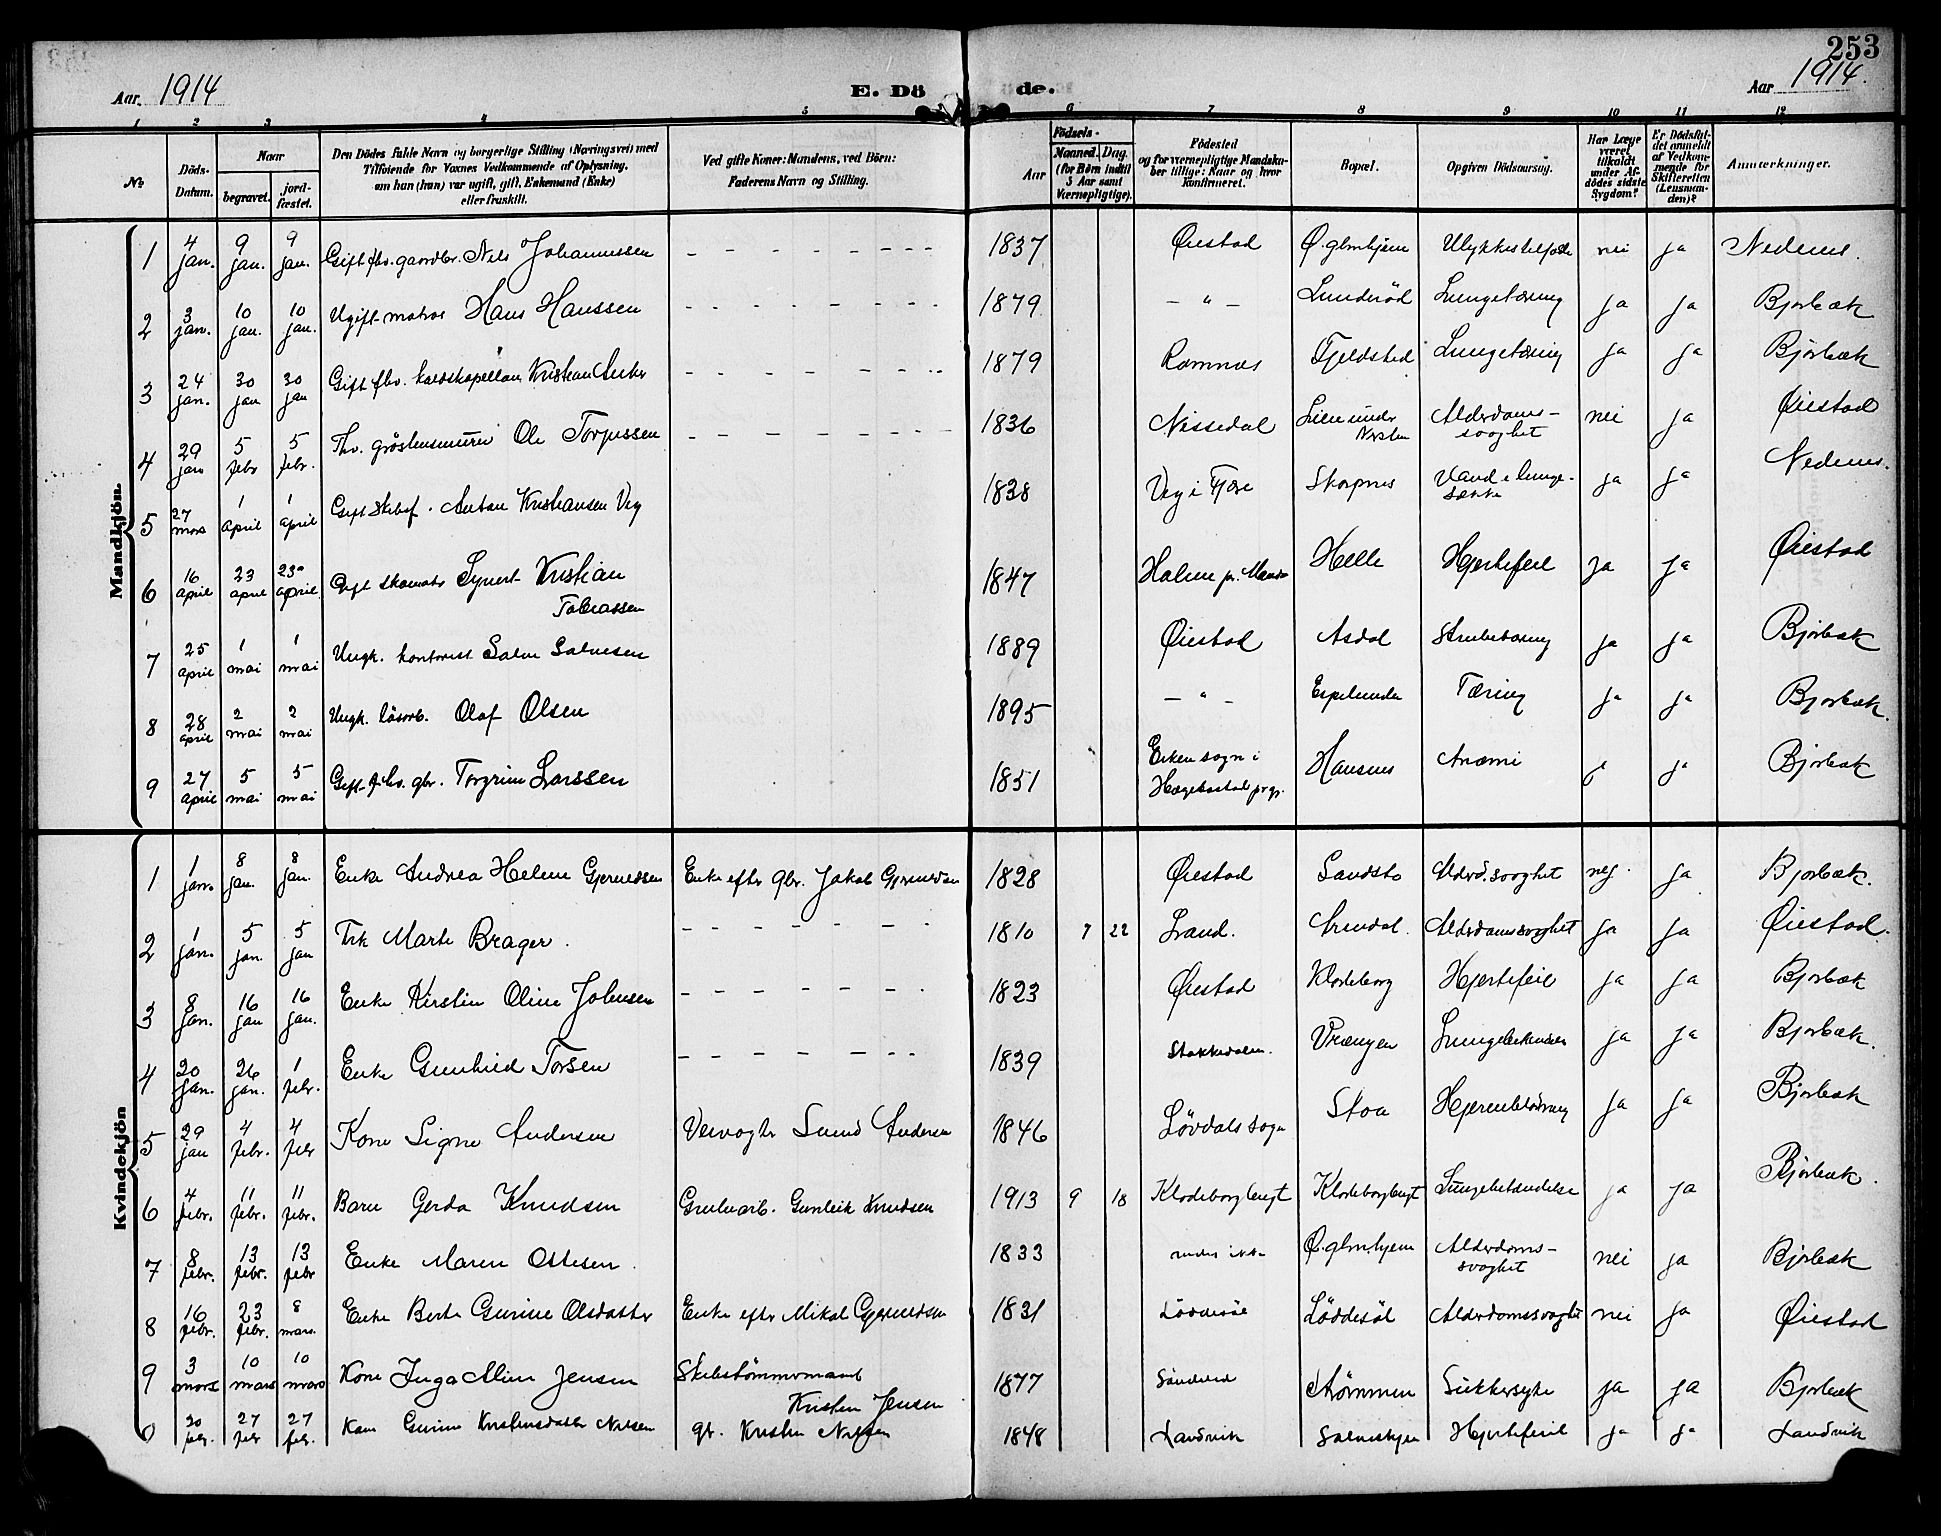 253
Aar 1914
E. Dö de.
Aar 1914
1 2 3 4 5 6 7 8 9 10 11 12
No
Döds-Datum.
Naar
begravet.
jord-fæstet.
Den Dödes fulde Navn og borgerlige Stilling (Næringsvei) med
Tilföiende for Voxnes Vedkommende af Oplysning,
om han (hun) var ugift, gift, Enkemand (Enke)
eller fraskilt.
Ved gifte Koner: Mandens, ved Börn:
Faderens Navn og Stilling.
Födsels-
Aar
Maaned. Dag.
(for Börn indtil
3 Aar samt
Værnepligtige).
Födested
og for værnepligtige Mandska-
ber tillige: Naar og hvor
konfirmeret.
Bopæl.
Opgiven Dödsaarsag.
Har Læge
været
tilkaldt
under Af-
dödes sidste
Sygdom?
Er Dödsfal-
det anmeldt
af Vedkom-
mende for
Skifteretten
(Lensman-
den)?
Anmærkninger.
Mandkjön.
1 4 jan. 9 jan. 9 jan. Gift fhv. gaardbr. Nils Johannessen 1837 Øiestad Ø. glmhjem Ulykkestilfælde nei ja Nedenes.
2 3 jan. 10 jan. 10 jan. Ugift matros Hans Hanssen 1879 — " — Lunderöd Lungetæring ja ja Bjorbæk
3 24 jan. 30 jan 30 jan Gift fhv. Kristian Anker 1879 Ramnæs Fjeldsted Lungetæring ja ja Bjorbæk
4 29 jan 5 febr 5 febr. Ole Torjussen 1836 Nissedal Lien under Alderdoms-
svaghet nei ja Øiestad
5 27 mars 1 april 1 april Gift Anton Kristiansen Vig 1838 Vig i Fjære Skarpnes Vand i lunge-
sække ja ja Nedenes.
6 16 april 23 april 23 april Gift skomaker Syvert Kristian
Tobiassen 1847 Halsen pr. Mandal Helle Hjertefeil ja ja Øiestad
7 25 april 1 mai 1 mai Ungk. kontorist Salve Salvesen 1889 Øiestad Asdal Strubetæring ja ja Bjorbæk
8 28 april 2 mai 2 mai Ungk. lösarb. Olaf Olsen 1895 — " — Espelunden Tæring ja ja Bjorbæk.
9 27 april 5 mai 5 mai Gift fhv. gbr. Torgrim Larssen 1851 Eiken sogn i
Hægebostad prgj. Hansnes Anæmi ja Bjorbæk
Kvindekjön
1 1 jan. 8 jan. 8 jan. Enke Andrea Helene Gjermundsen Enke efter gbr. Jakob Gjermundsen 1828 Øiestad Sandsto Alderd. svaghet nej. ja Bjorbæk.
2 1 jan. 5 jan. 5 jan Frk Marte Brager. 1810 7 22 Land. Arendal. Alderdomssvaghet ja ja Øiestad.
3 8 jan. 16 jan 16 jan. Enke Kirstin Oline Johnsen 1823 Øiestad Klodeborg Hjertefeil ja ja Bjorbæk
4 20 jan. 26 jan. 1 febr. Enke Gunhild Torsen 1839 Stokkedalen. Vrængen Lungebetændelse ja ja Bjorbæk.
5 29 jan 4 febr. 4 febr Kone Signe Andersen Veivogter Svend Andersen 1846 Lövdals sogn Stoa Hjerneblödning ja ja Bjorbæk
6 4 febr. 11 febr. 11 febr. Barn Gerda Knudsen Grubearb. Gunleik Knudsen 1913 9 18 Klodeborgbugt Klodeborgbugt Lungebetændelse ja ja Bjorbæk.
7 8 febr. 13 febr. 13 febr Enke Maren Ottesen. 1833 vides ikke Ø. glmhjem Alderdoms-
svaghet nei ja Bjorbæk
8 16 febr. 23 febr. 8 mars. Enke Berte Gurine Olsdatter Enke efter Mikal Gjermundsen 1831 Löddesöl Löddesöl Alderdomssvaghet nei ja Øiestad
9 3 mars 10 mars 10 mars Kone Inga Aline Jensen Skibstömmermand
Kristen Jensen 1877 Sandvid Strömmen Sukkersyke ja ja Bjorbæk
0 20 febr. 27 febr 27 febr. Kone Gurine Kristensdatter Nilsen gbr. Kristen Nilsen 1848 Landvik Salveskjen Hjertefeil ja ja Landvik